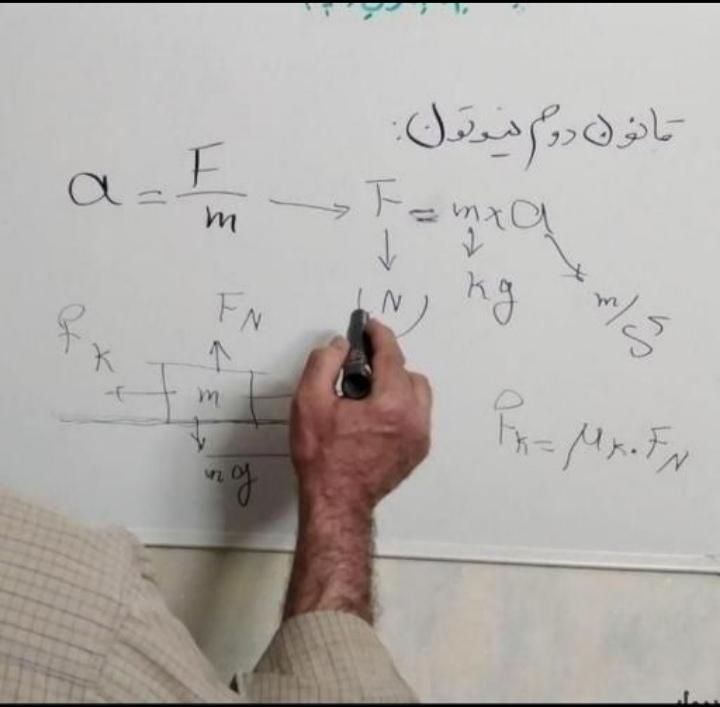 قانون دوم نیوتون:
a = F/m → F = m×a
(N) kg m/s²
F_N
f_K
m
mg
f_K = μ_K . F_N